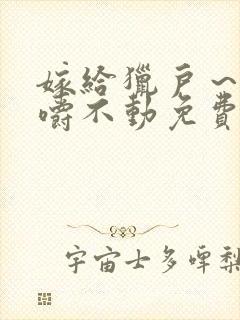 嫁给獵戶~
嚼不動免費
宇宙士多啤梨